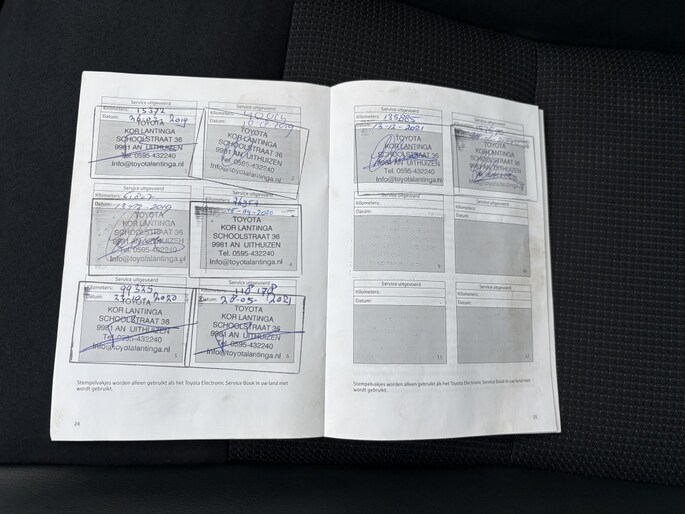 Service uitgevoerd
Kilometers: 15372
Datum: 2019
TOYOTA
KOR LANTINGA
SCHOOLSTRAAT 36
9981 AN UITHUIZEN
Tel. 0595-432240
Info@toyotalantinga.nl
Service uitgevoerd
Kilometers:
Datum:
TOYOTA
KOR LANTINGA
SCHOOLSTRAAT 36
9981 AN UITHUIZEN
Tel. 0595-432240
Info@toyotalantinga.nl
Service uitgevoerd
Kilometers:
Datum: 2019
TOYOTA
KOR LANTINGA
SCHOOLSTRAAT 36
9981 AN UITHUIZEN
Tel. 0595-432240
Info@toyotalantinga.nl
Service uitgevoerd
2020
TOYOTA
KOR LANTINGA
SCHOOLSTRAAT 36
9981 AN UITHUIZEN
Tel. 0595-432240
Info@toyotalantinga.nl
4
Service uitgevoerd
Kilometers: 99325
Datum: 2020
TOYOTA
KOR LANTINGA
SCHOOLSTRAAT 36
9981 AN UITHUIZEN
Tel. 0595-432240
Info@toyotalantinga.nl
5
Service uitgevoerd
Kilometers: 118178
Datum: 28-05-2021
TOYOTA
KOR LANTINGA
SCHOOLSTRAAT 36
9981 AN UITHUIZEN
Tel. 0595-432240
Info@toyotalantinga.nl
6
Stempelvakjes worden alleen gebruikt als het Toyota Electronic Service Book in uw land niet
wordt gebruikt.
24
Service uitgevoerd
Kilometers: 135885
13-12-2021
TOYOTA
KOR LANTINGA
SCHOOLSTRAAT 36
9981 AN UITHUIZEN
Tel. 0595-432240
Info@toyotalantinga.nl
Service uitgevoerd
TOYOTA
KOR LANTINGA
SCHOOLSTRAAT 36
9981 AN UITHUIZEN
Info@toyotalantinga.nl
Service uitgevoerd
Kilometers:
Datum:
9
Service uitgevoerd
Kilometers:
Datum:
Service uitgevoerd
Kilometers:
Datum:
11
Service uitgevoerd
Kilometers:
Datum:
12
Stempelvakjes worden alleen gebruikt als het Toyota Electronic Service Book in uw land niet
wordt gebruikt.